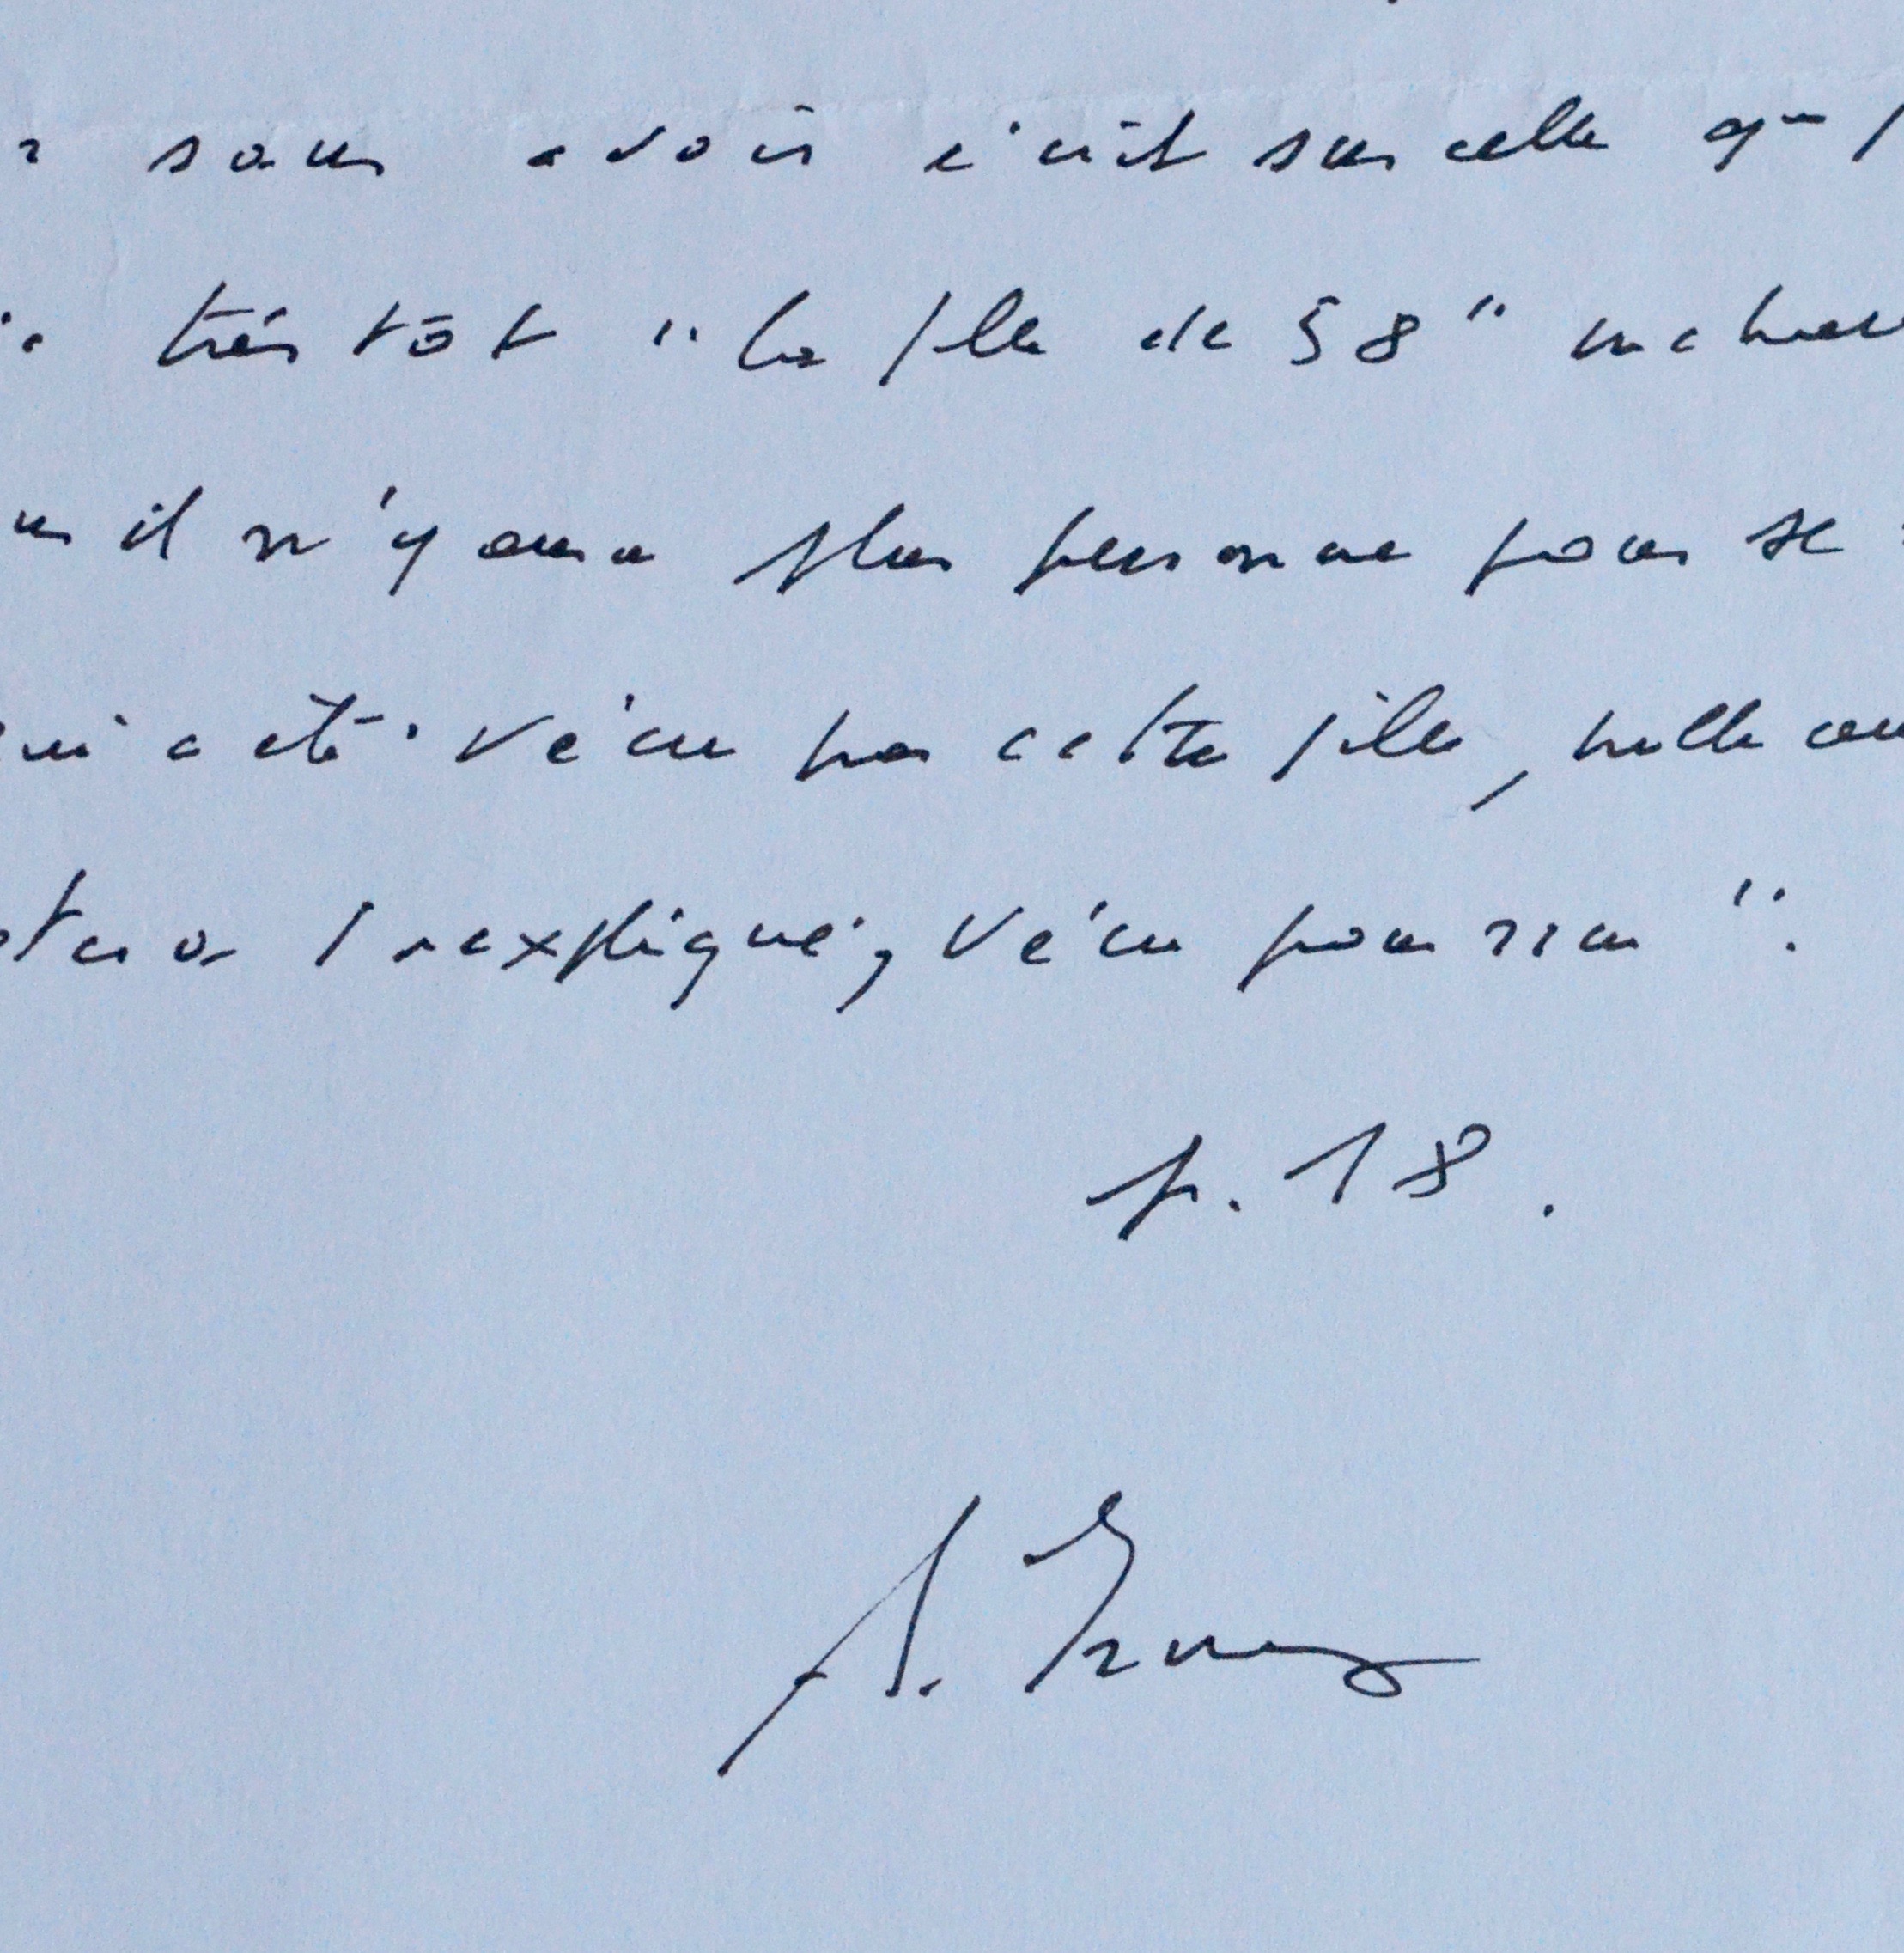 sans avoir écrit sur celle que j
très tôt "la fille de 58" me han
il n'y aura plus personne pour se
ui a été vécu par cette fille, nulle au
stera inexpliqué, vécu pour rien".
p. 18.
A. Ernaux